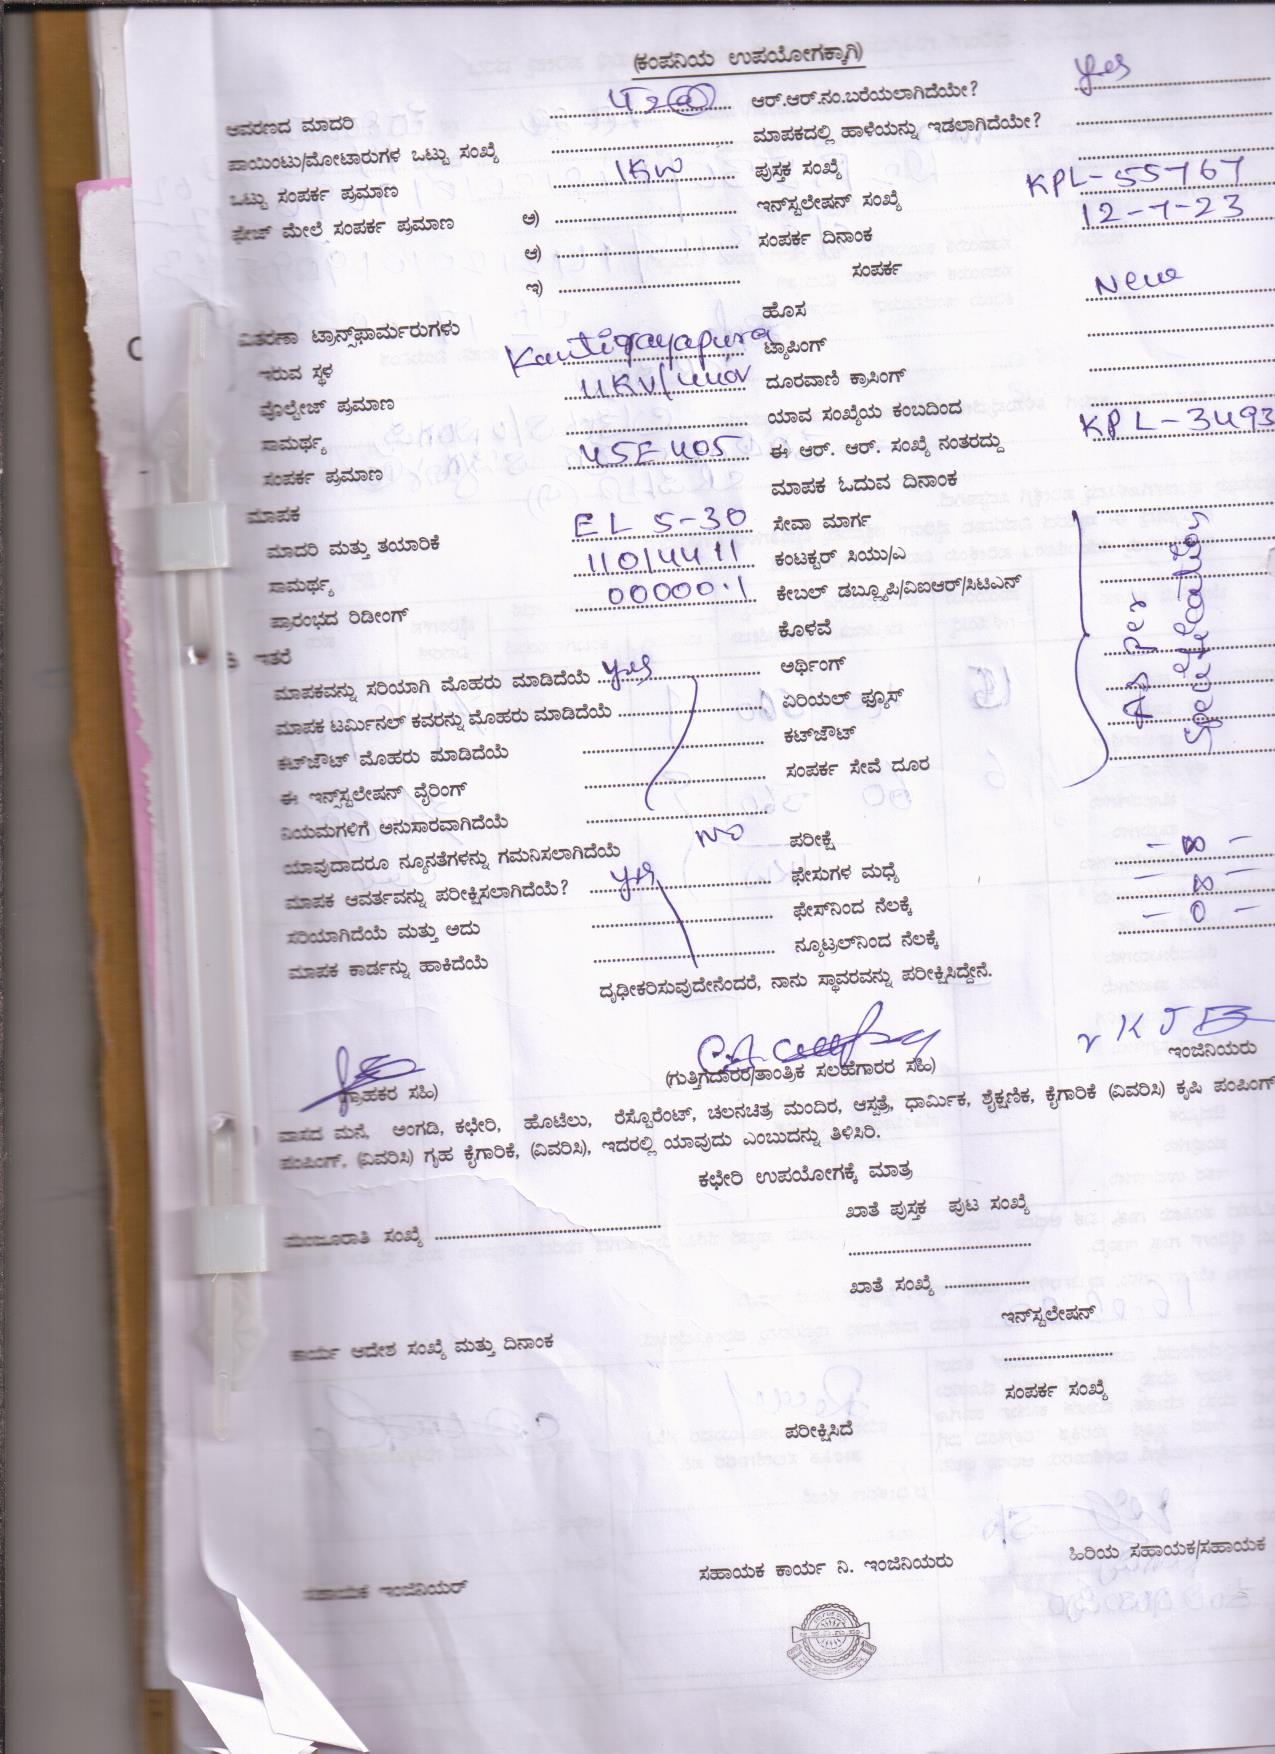 (ಕಂಪನಿಯ ಉಪಯೋಗಕ್ಕಾಗಿ)
ಆವರಣದ ಮಾದರಿ ಆರ್.ಆರ್.ನಂ.ಬರೆಯಲಾಗಿದೆಯೇ? yes
ಪಾಯಿಂಟು/ಮೋಟಾರುಗಳ ಒಟ್ಟು ಸಂಖ್ಯೆ ಮಾಪಕದಲ್ಲಿ ಹಾಳೆಯನ್ನು ಇಡಲಾಗಿದೆಯೇ?
ಒಟ್ಟು ಸಂಪರ್ಕ ಪ್ರಮಾಣ 1KW ಪುಸ್ತಕ ಸಂಖ್ಯೆ
ಫೇಜ್ ಮೇಲೆ ಸಂಪರ್ಕ ಪ್ರಮಾಣ ಅ) ಇನ್‌ಸ್ಟಲೇಷನ್ ಸಂಖ್ಯೆ KPL-55767
ಆ) ಸಂಪರ್ಕ ದಿನಾಂಕ 12-7-23
ಇ) ಸಂಪರ್ಕ
ವಿತರಣಾ ಟ್ರಾನ್ಸ್‌ಫಾರ್ಮರುಗಳು ಹೊಸ New
ಇರುವ ಸ್ಥಳ Kantigayapura ಟ್ಯಾಪಿಂಗ್
ವೊಲ್ಟೇಜ್ ಪ್ರಮಾಣ 11KV/440V ದೂರವಾಣಿ ಕ್ರಾಸಿಂಗ್
ಸಾಮರ್ಥ್ಯ ಯಾವ ಸಂಖ್ಯೆಯ ಕಂಬದಿಂದ
ಸಂಪರ್ಕ ಪ್ರಮಾಣ ಈ ಆರ್. ಆರ್. ಸಂಖ್ಯೆ ನಂತರದ್ದು KPL-3493
ಮಾಪಕ ಮಾಪಕ ಓದುವ ದಿನಾಂಕ
ಮಾದರಿ ಮತ್ತು ತಯಾರಿಕೆ EL 5-30 ಸೇವಾ ಮಾರ್ಗ
ಸಾಮರ್ಥ್ಯ 11014411 ಕಂಟಕ್ಟರ್ ಸಿಯು/ಎ
ಪ್ರಾರಂಭದ ರಿಡೀಂಗ್ 00000.1 ಕೇಬಲ್ ಡಬ್ಲ್ಯೂಪಿ/ವಿಐಆರ್/ಸಿಟಿಎನ್
ಕೊಳವೆ
ಇತರೆ ಅರ್ಥಿಂಗ್ As per specification
ಮಾಪಕವನ್ನು ಸರಿಯಾಗಿ ಮೊಹರು ಮಾಡಿದೆಯೆ yes ಏರಿಯಲ್ ಫ್ಯೂಸ್
ಮಾಪಕ ಟರ್ಮಿನಲ್ ಕವರನ್ನು ಮೊಹರು ಮಾಡಿದೆಯೆ ಕಟ್‌ಔಟ್
ಕಟ್‌ಔಟ್ ಮೊಹರು ಮಾಡಿದೆಯೆ ಸಂಪರ್ಕ ಸೇವೆ ದೂರ
ಈ ಇನ್ಸ್‌ಸ್ಟಲೇಷನ್ ವೈರಿಂಗ್
ನಿಯಮಗಳಿಗೆ ಅನುಸಾರವಾಗಿದೆಯೆ
ಯಾವುದಾದರೂ ನ್ಯೂನತೆಗಳನ್ನು ಗಮನಿಸಲಾಗಿದೆಯೆ NO ಪರೀಕ್ಷೆ
ಮಾಪಕ ಆವರ್ತವನ್ನು ಪರೀಕ್ಷಿಸಲಾಗಿದೆಯೆ? yes ಫೇಸುಗಳ ಮಧ್ಯೆ - ∞ -
ಸರಿಯಾಗಿದೆಯೆ ಮತ್ತು ಅದು ಫೇಸ್‌ನಿಂದ ನೆಲಕ್ಕೆ - ∞ -
ಮಾಪಕ ಕಾರ್ಡನ್ನು ಹಾಕಿದೆಯೆ ನ್ಯೂಟ್ರಲ್‌ನಿಂದ ನೆಲಕ್ಕೆ - 0 -
ದೃಢೀಕರಿಸುವುದೇನೆಂದರೆ, ನಾನು ಸ್ಥಾವರವನ್ನು ಪರೀಕ್ಷಿಸಿದ್ದೇನೆ.
ಗ್ರಾಹಕರ ಸಹಿ) (ಗುತ್ತಿಗೆದಾರರ/ತಾಂತ್ರಿಕ ಸಲಹೆಗಾರರ ಸಹಿ) ಇಂಜಿನಿಯರು
ವಾಸದ ಮನೆ, ಅಂಗಡಿ, ಕಛೇರಿ, ಹೊಟೆಲು, ರೆಸ್ಟೊರೆಂಟ್, ಚಲನಚಿತ್ರ ಮಂದಿರ, ಆಸ್ಪತ್ರೆ, ಧಾರ್ಮಿಕ, ಶೈಕ್ಷಣಿಕ, ಕೈಗಾರಿಕೆ (ವಿವರಿಸಿ) ಕೃಷಿ ಪಂಪಿಂಗ್
ಪಂಪಿಂಗ್, (ವಿವರಿಸಿ) ಗೃಹ ಕೈಗಾರಿಕೆ, (ವಿವರಿಸಿ), ಇದರಲ್ಲಿ ಯಾವುದು ಎಂಬುದನ್ನು ತಿಳಿಸಿರಿ.
ಕಛೇರಿ ಉಪಯೋಗಕ್ಕೆ ಮಾತ್ರ
ಮಂಜೂರಾತಿ ಸಂಖ್ಯೆ ಖಾತೆ ಪುಸ್ತಕ ಪುಟ ಸಂಖ್ಯೆ
ಖಾತೆ ಸಂಖ್ಯೆ
ಇನ್‌ಸ್ಟಲೇಷನ್
ಕಾರ್ಯ ಆದೇಶ ಸಂಖ್ಯೆ ಮತ್ತು ದಿನಾಂಕ
ಸಂಪರ್ಕ ಸಂಖ್ಯೆ
ಪರೀಕ್ಷಿಸಿದೆ
ಸಹಾಯಕ ಇಂಜಿನಿಯರ್ ಸಹಾಯಕ ಕಾರ್ಯ ನಿ. ಇಂಜಿನಿಯರು ಹಿರಿಯ ಸಹಾಯಕ/ಸಹಾಯಕ